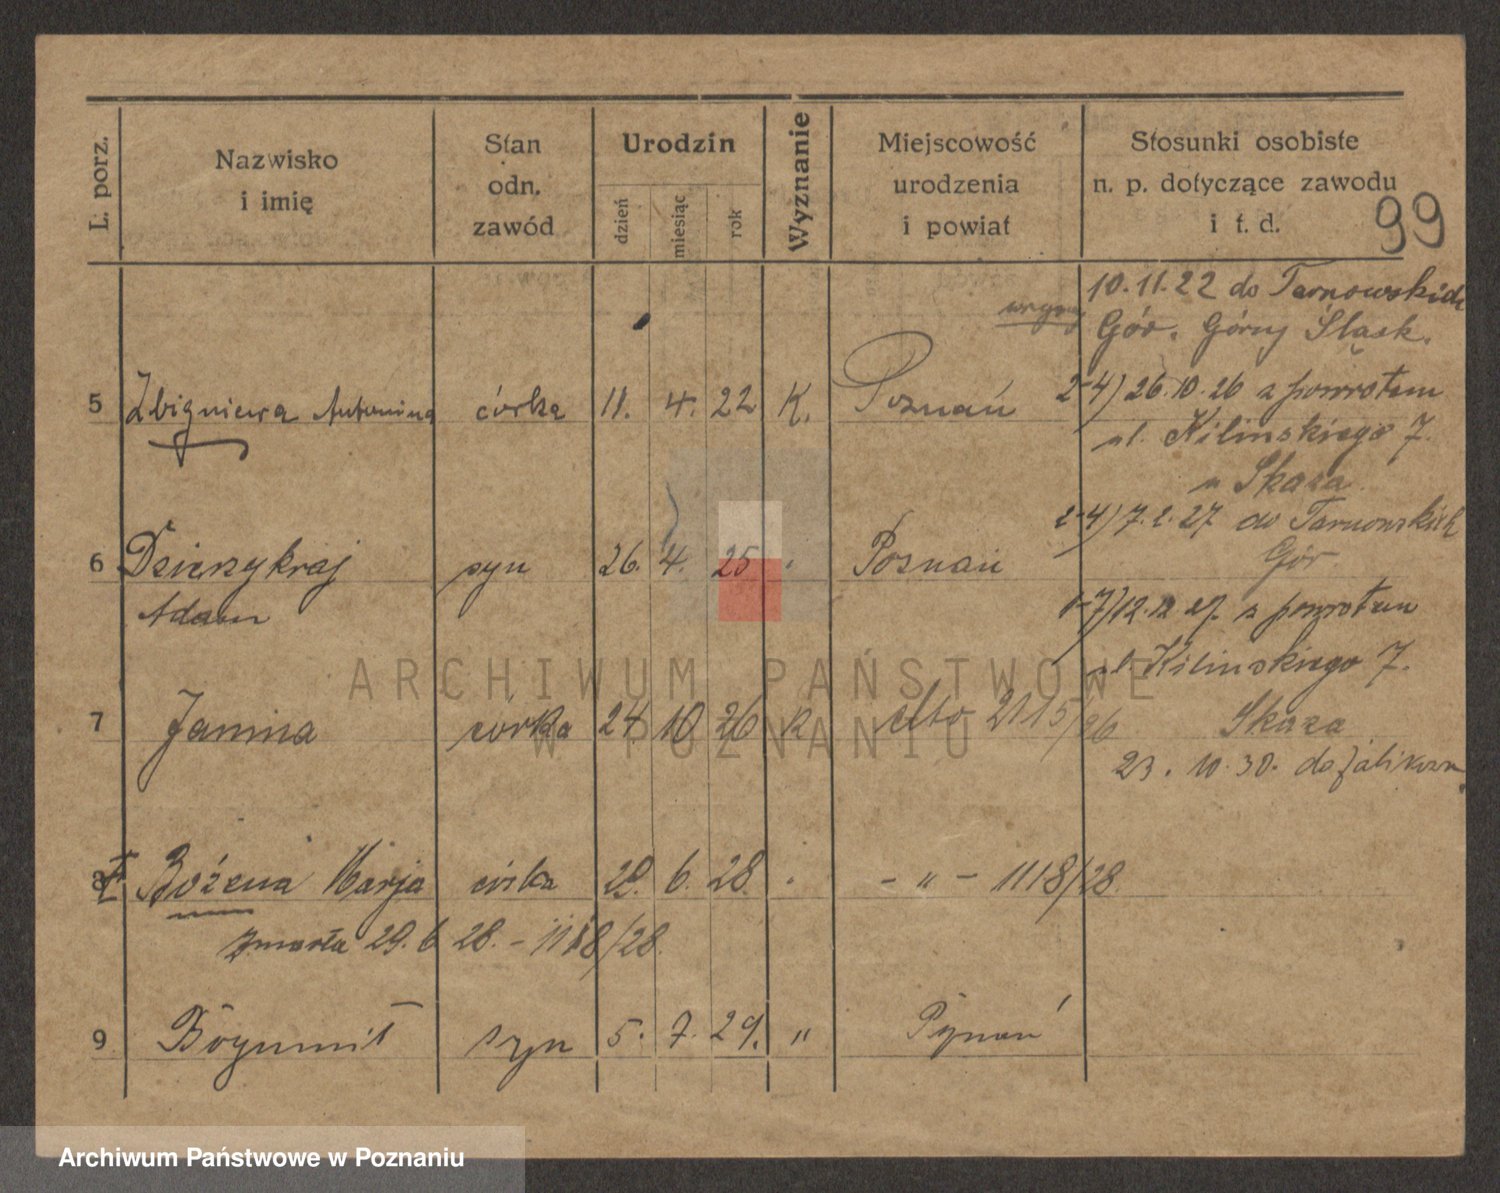 L. porz.
Nazwisko
i imię
Stan
odn.
zawód
Urodzin
dzień
miesiąc
rok
Wyznanie
Miejscowość
urodzenia
i powiat
Stosunki osobiste
n. p. dotyczące zawodu
i t. d.
99
10.11.22 do Tarnowskich
Gór. Górny Śląsk.
5 Zbigniewa Antonina córka 11. 4. 22 K. Poznań
2-4) 26.10.26 z powrotem
ul. Kilinskiego 7.
u Skaza
6 Dzierzykraj syn 26. 4. 25 Poznań
Adam
2-4) 7.2.27 do Tarnowskich
Gór
1-7) 12.12.27. z powrotem
ul. Kilinskiego 7.
Skaza
7 Janina córka 24 10 26 K dto 2115/26
23. 10. 30. do
8 Bożena Marja córka 29. 6. 28. - " - 1118/28
zmarła 29.6 28. - 1118/28.
9 Bogumił syn 5. 7. 29. " Poznań
ARCHIWUM PAŃSTWOWE
W POZNANIU
Archiwum Państwowe w Poznaniu